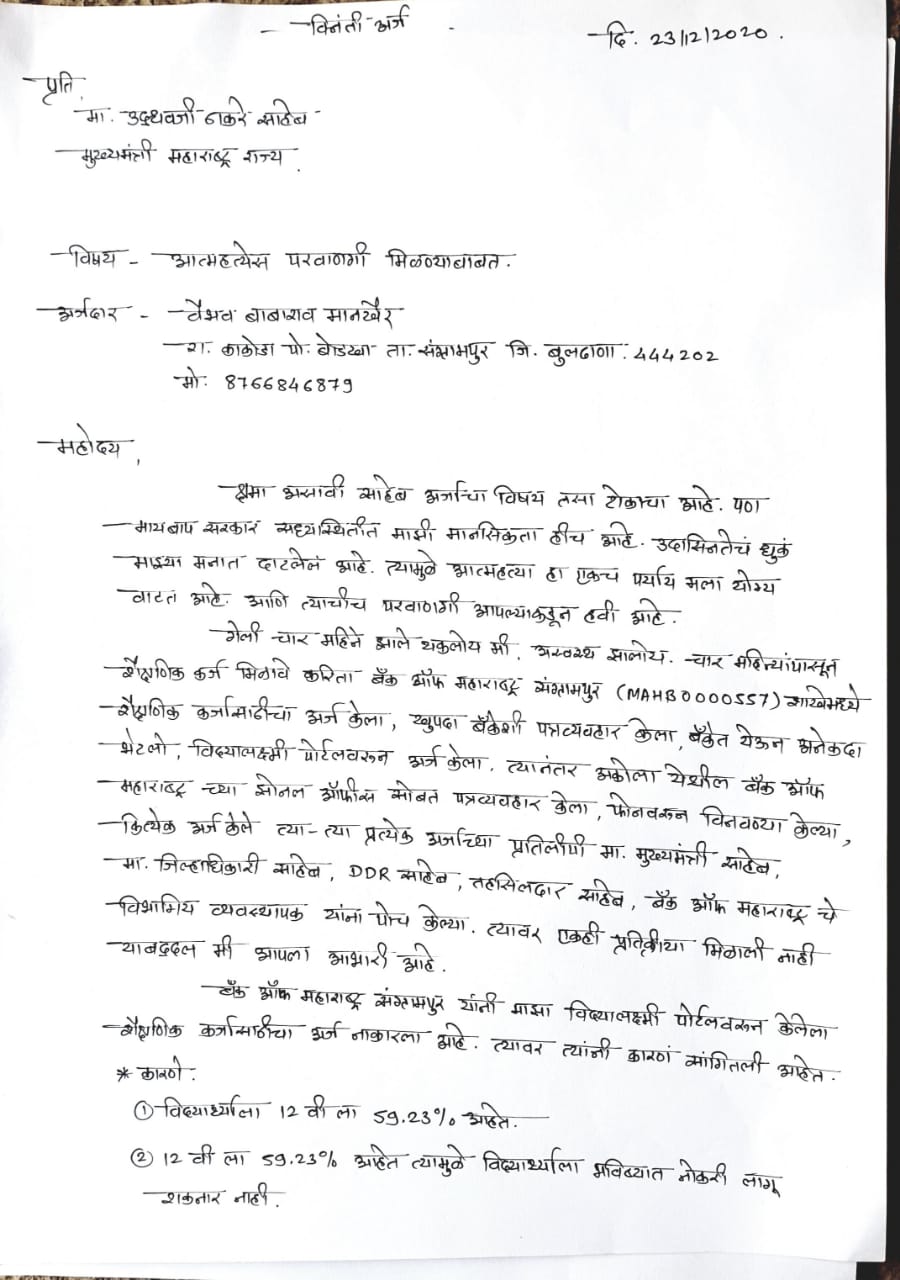 - विनंती अर्ज -
दि. 23/12/2020.
प्रति,
मा. उद्धवजी ठाकरे साहेब
मुख्यमंत्री महाराष्ट्र राज्य.
विषय - आत्महत्येस परवाणगी मिळण्याबाबत.
अर्जदार - वैभव बाबाराव मानखैर
रा. काकोडा पो. बोडखा ता. संग्रामपुर जि. बुलढाणा. 444202
मो: 8766846879
महोदय,
क्षमा असावी साहेब अर्जाचा विषय तसा टोकाचा आहे. पण
मायबाप सरकार सध्यस्थितीत माझी मानसिकता हीच आहे. उदासिनतेचं धुकं
माझ्या मनात दाटलेलं आहे. त्यामुळे आत्महत्या हा एकच पर्याय मला योग्य
वाटत आहे. आणि त्याचीच परवाणगी आपल्याकडून हवी आहे.
गेली चार महिने झाले थकलोय मी, अस्वस्थ झालोय. चार महिन्यांपासून
शैक्षणिक कर्ज मिळावे करिता बँक ऑफ महाराष्ट्र संग्रामपुर (MAHB0000557) शाखेमध्ये
शैक्षणिक कर्जासाठीचा अर्ज केला, खुपदा बँकेशी पत्रव्यवहार केला, बँकेत येऊन अनेकदा
भेटलो, विद्यालक्ष्मी पोर्टलवरून अर्ज केला. त्यानंतर अकोला येथील बँक ऑफ
महाराष्ट्र च्या झोनल ऑफीस सोबत पत्रव्यवहार केला, फोनवरून विनवण्या केल्या,
कित्येक अर्ज केले त्या-त्या प्रत्येक अर्जाच्या प्रतिलीपी मा. मुख्यमंत्री साहेब,
मा. जिल्हाधिकारी साहेब, DDR साहेब, तहसिलदार साहेब, बँक ऑफ महाराष्ट्र चे
विभागिय व्यवस्थापक यांना पोच केल्या. त्यावर एकही प्रतिक्रीया मिळाली नाही
याबद्दल मी आपला आभारी आहे.
बँक ऑफ महाराष्ट्र संग्रामपुर यांनी माझा विद्यालक्ष्मी पोर्टलवरून केलेला
शैक्षणिक कर्जासाठीचा अर्ज नाकारला आहे. त्यावर त्यांनी कारणं सांगितली आहेत.
* कारणे.
① विद्यार्थ्याला 12 वी ला 59.23% आहेत.
② 12 वी ला 59.23% आहेत त्यामुळे विद्यार्थ्याला भविष्यात नोकरी लागू
शकनार नाही.